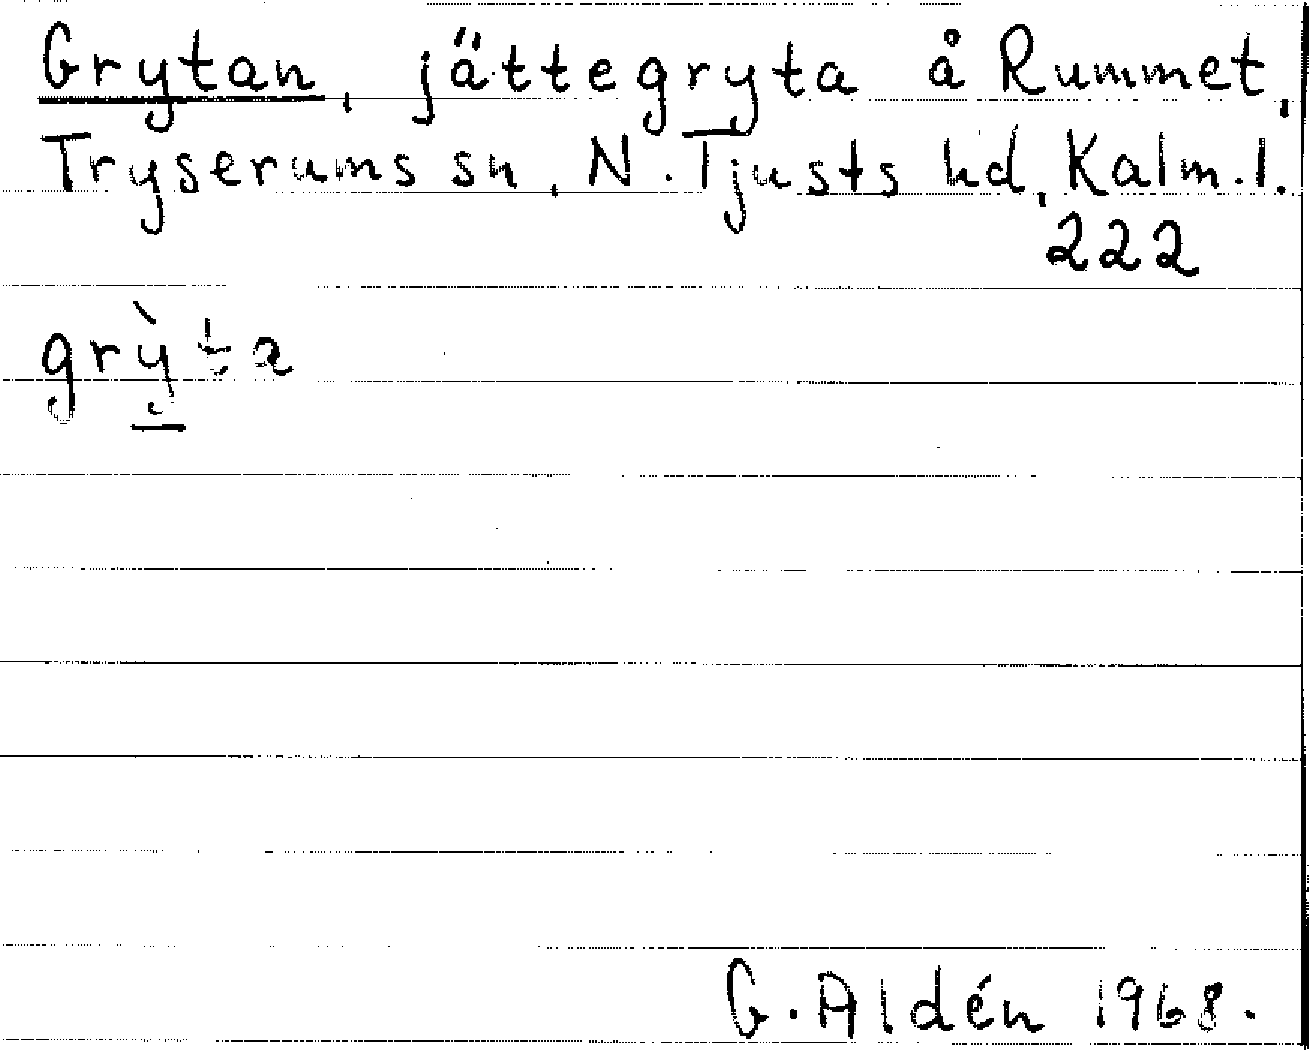 Grytan, jättegryta å Rummet,
Tryserums sn, N. Tjusts hd, Kalm. l.
222
grỳta
G. Aldén 1968.